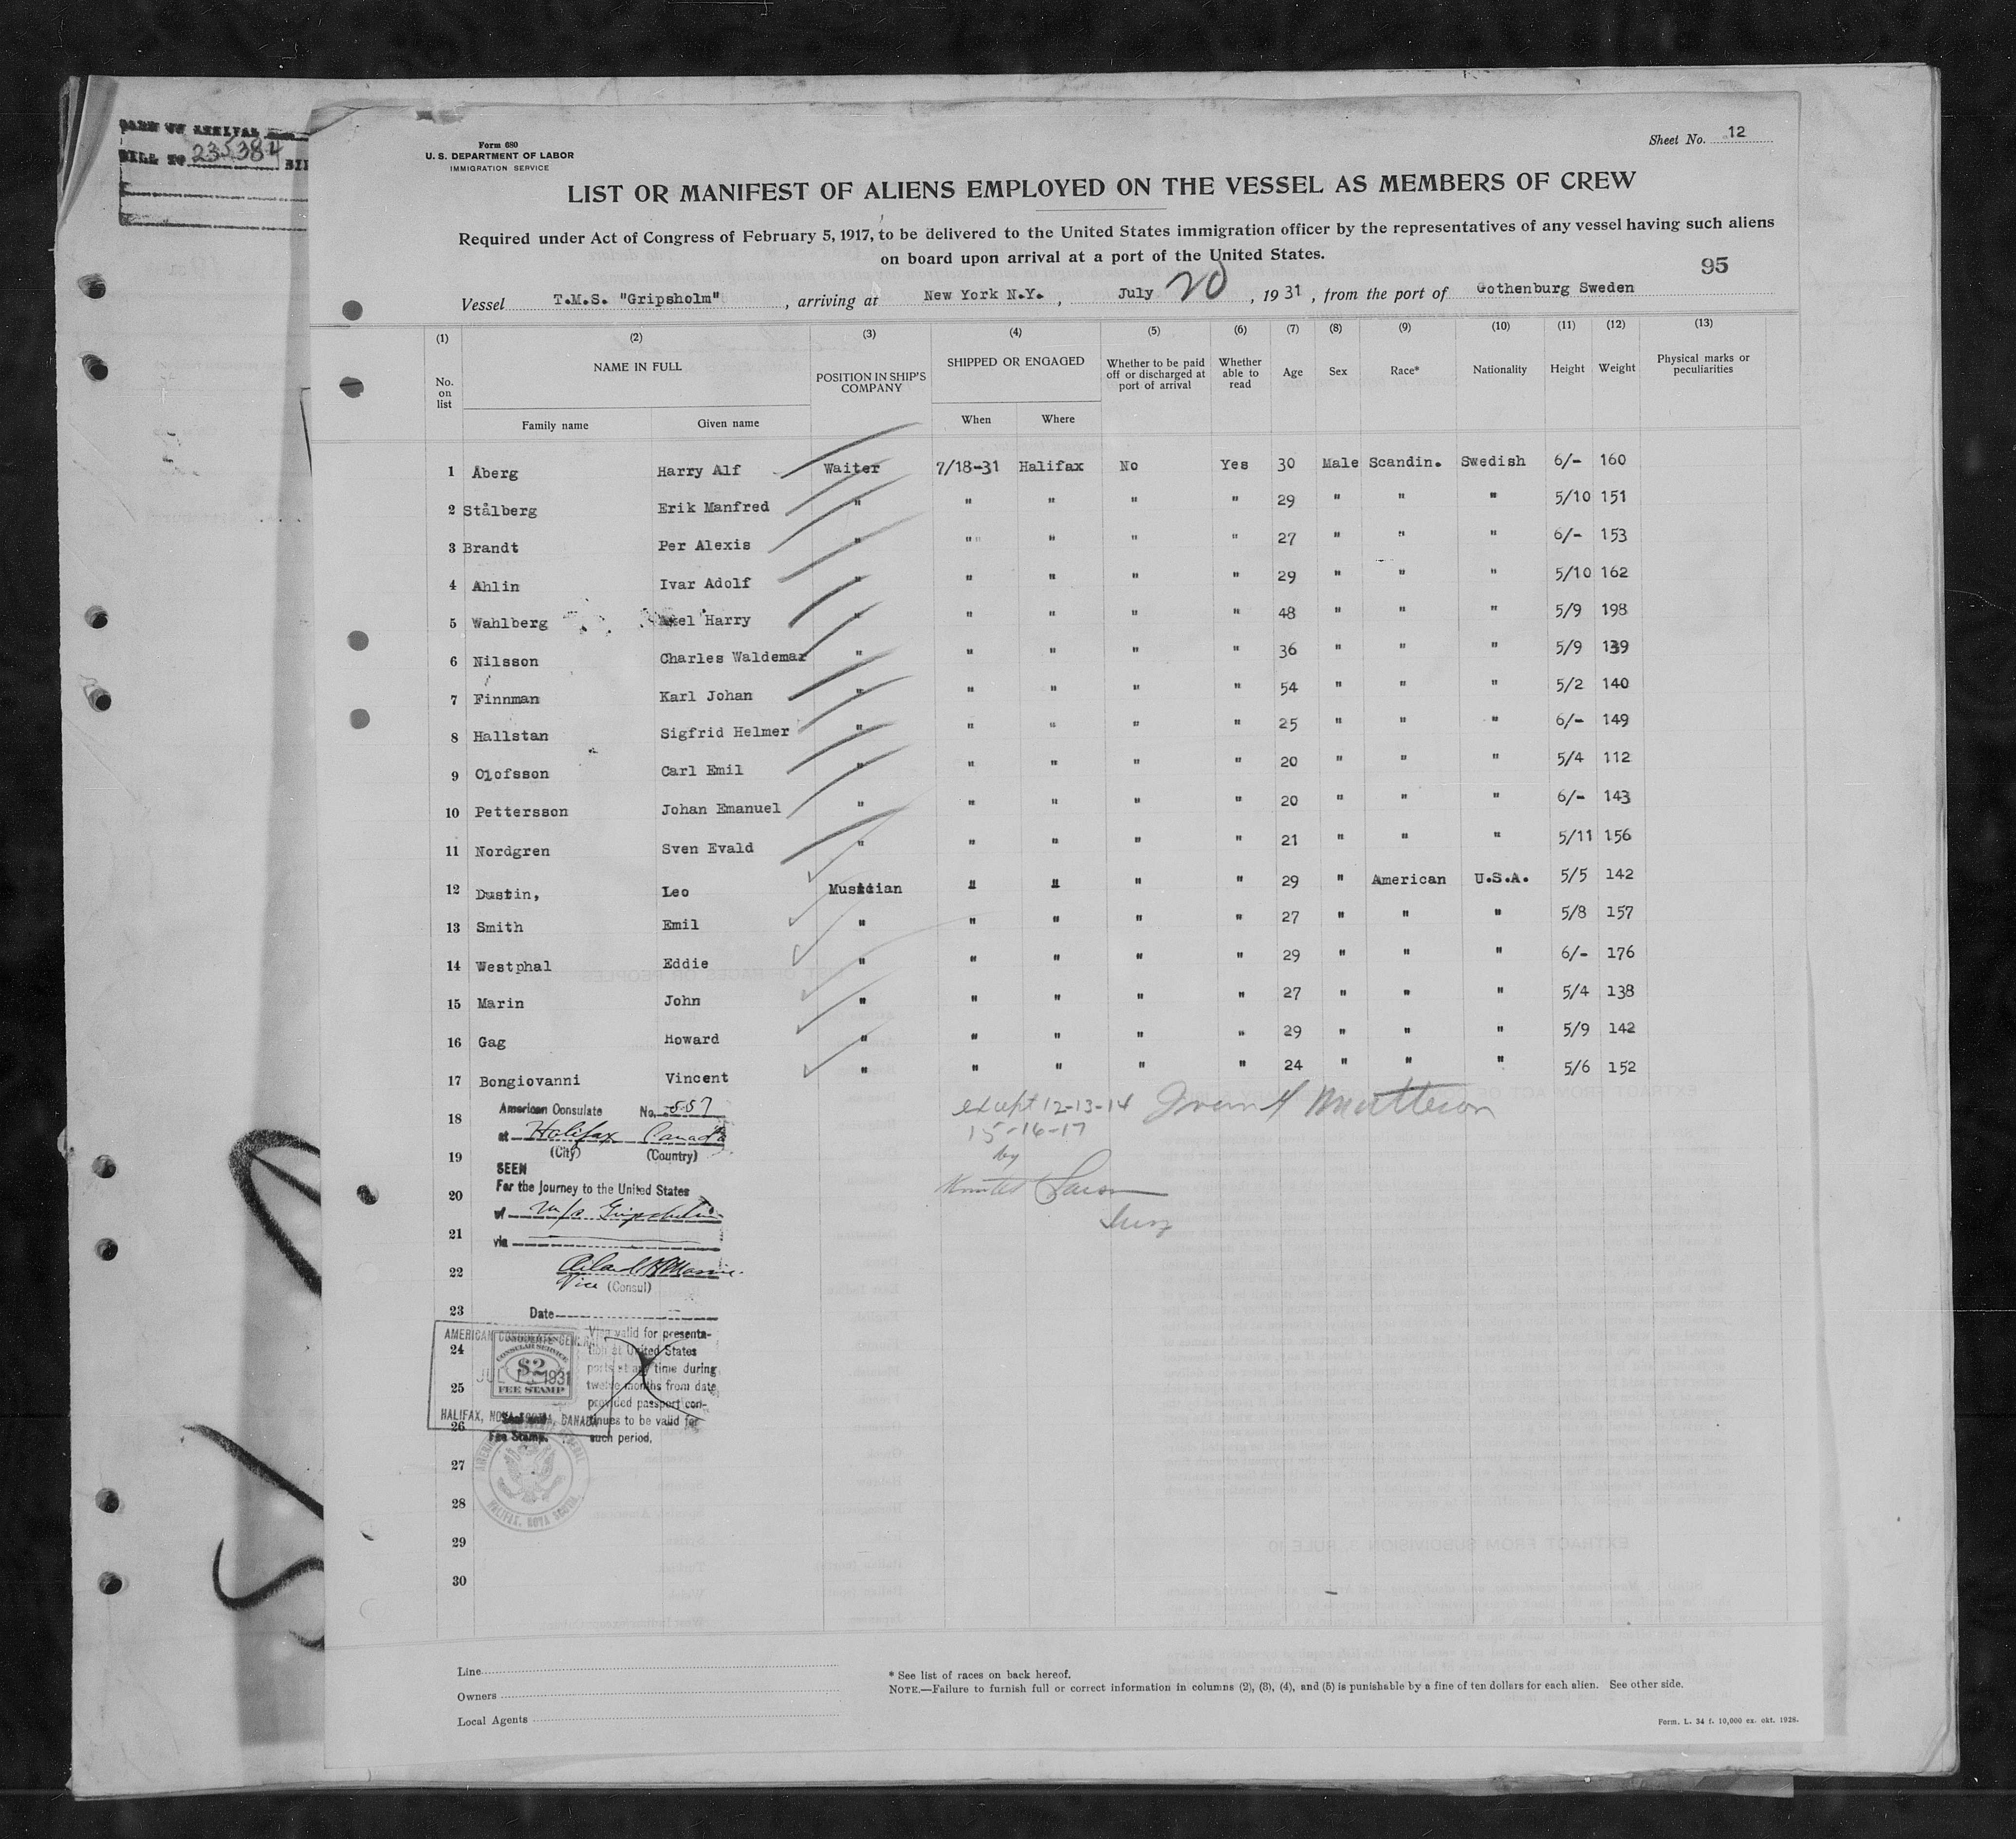 BILL TO 235384 BIL
Form 680
U. S. DEPARTMENT OF LABOR
IMMIGRATION SERVICE
Sheet No. 12
LIST OR MANIFEST OF ALIENS EMPLOYED ON THE VESSEL AS MEMBERS OF CREW
Required under Act of Congress of February 5, 1917, to be delivered to the United States immigration officer by the representatives of any vessel having such aliens
on board upon arrival at a port of the United States.
95
Vessel T.M.S. "Gripsholm", arriving at New York N.Y., July 20, 1931, from the port of Gothenburg Sweden
(1) (2) (3) (4) (5) (6) (7) (8) (9) (10) (11) (12) (13)
No. on list NAME IN FULL POSITION IN SHIP'S COMPANY SHIPPED OR ENGAGED Whether to be paid off or discharged at port of arrival Whether able to read Age Sex Race* Nationality Height Weight Physical marks or peculiarities
Family name Given name When Where
1 Åberg Harry Alf Waiter 7/18-31 Halifax No Yes 30 Male Scandin. Swedish 6/- 160
2 Stålberg Erik Manfred " " " " " 29 " " " 5/10 151
3 Brandt Per Alexis " " " " " 27 " " " 6/- 153
4 Ahlin Ivar Adolf " " " " " 29 " " " 5/10 162
5 Wahlberg Axel Harry " " " " " 48 " " " 5/9 198
6 Nilsson Charles Waldemar " " " " " 36 " " " 5/9 139
7 Finnman Karl Johan " " " " " 54 " " " 5/2 140
8 Hallstan Sigfrid Helmer " " " " " 25 " " " 6/- 149
9 Olofsson Carl Emil " " " " " 20 " " " 5/4 112
10 Pettersson Johan Emanuel " " " " " 20 " " " 6/- 143
11 Nordgren Sven Evald " " " " " 21 " " " 5/11 156
12 Dustin, Leo Musician " " " " 29 " American U.S.A. 5/5 142
13 Smith Emil " " " " " 27 " " " 5/8 157
14 Westphal Eddie " " " " " 29 " " " 6/- 176
15 Marin John " " " " " 27 " " " 5/4 138
16 Gag Howard " " " " " 29 " " " 5/9 142
17 Bongiovanni Vincent " " " " " 24 " " " 5/6 152
18
19
20
21
22
23
24
25
26
27
28
29
30
American Consulate No. 557
at Halifax Canada
(City) (Country)
SEEN
For the Journey to the United States
of M/S Gripsholm
via
Vice (Consul)
Date
Visa valid for presenta-
tion at United States
ports at any time during
twelve months from date
provided passport con-
tinues to be valid for
such period.
AMERICAN CONSULATE GENERAL
JUL 1931
HALIFAX, NOVA SCOTIA, CANADA
CONSULAR SERVICE
$2
FEE STAMP
Seal and
Fee Stamp.
HALIFAX, NOVA SCOTIA
except 12-13-14
15-16-17
by
Line
Owners
Local Agents
* See list of races on back hereof.
NOTE.—Failure to furnish full or correct information in columns (2), (3), (4), and (5) is punishable by a fine of ten dollars for each alien. See other side.
Form. L. 34 f. 10,000 ex. okt. 1928.